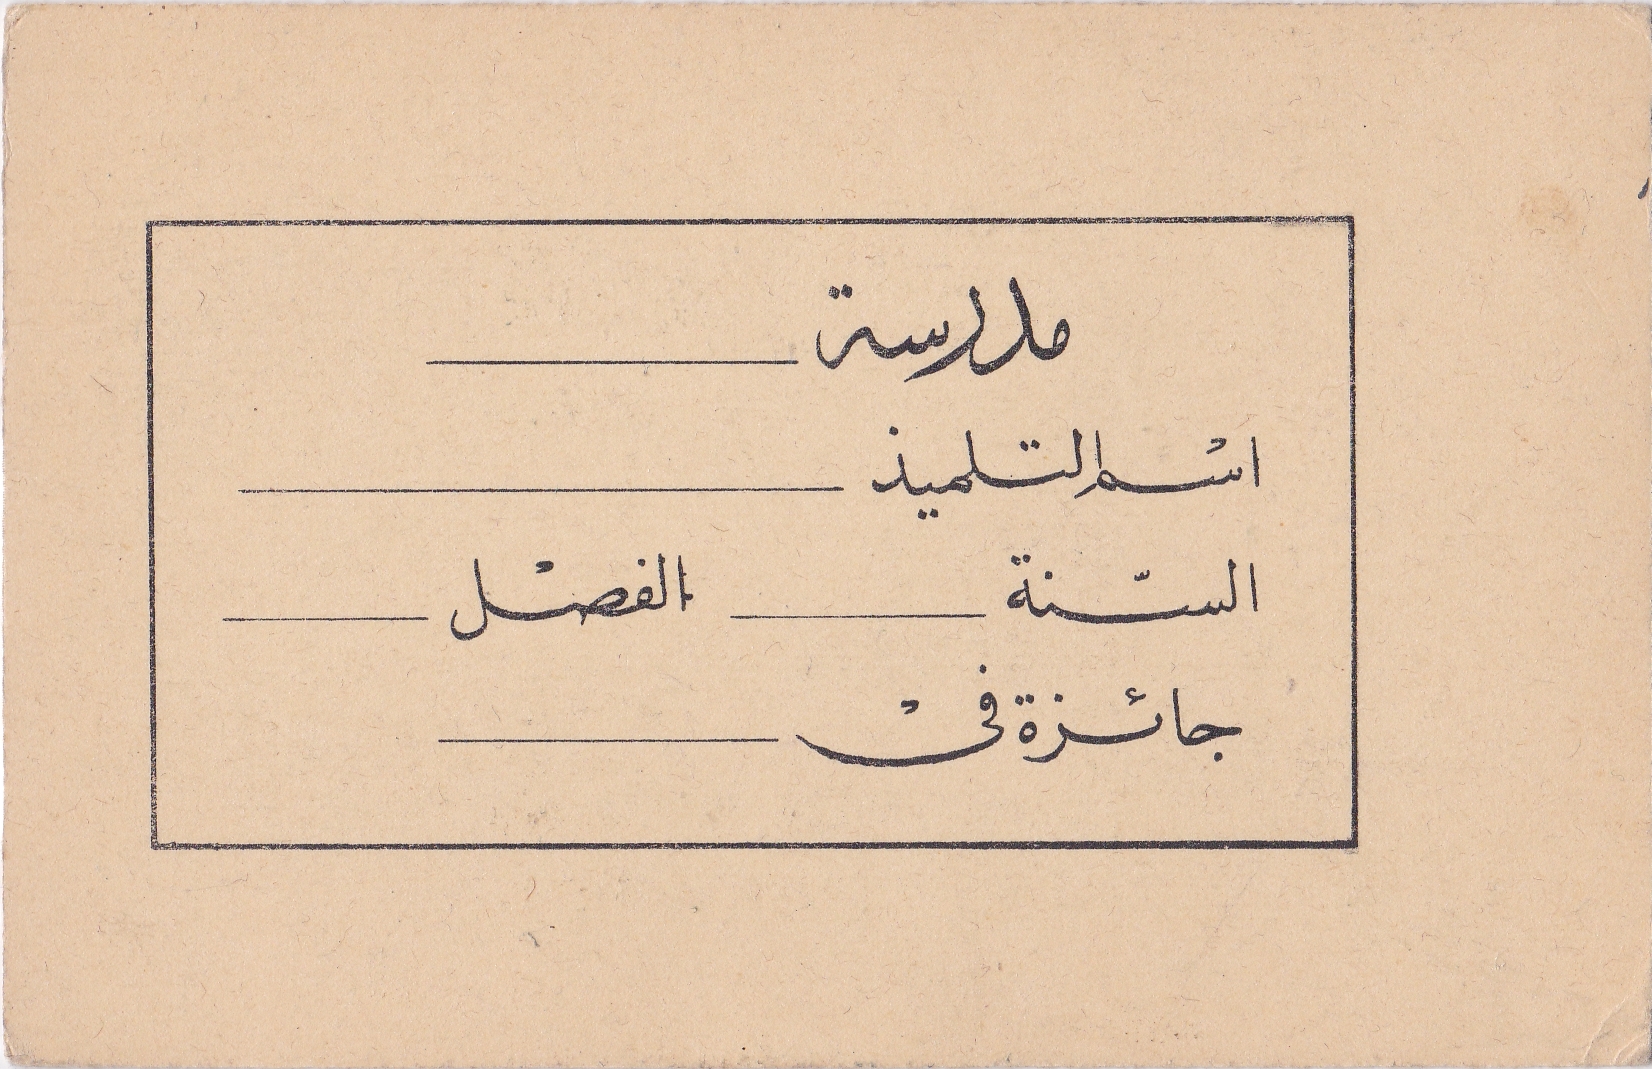 مدرسة ____________
اسْم التلميذ ____________
السّنة ____________ الفصْل ____________
جائزة فىْ ____________